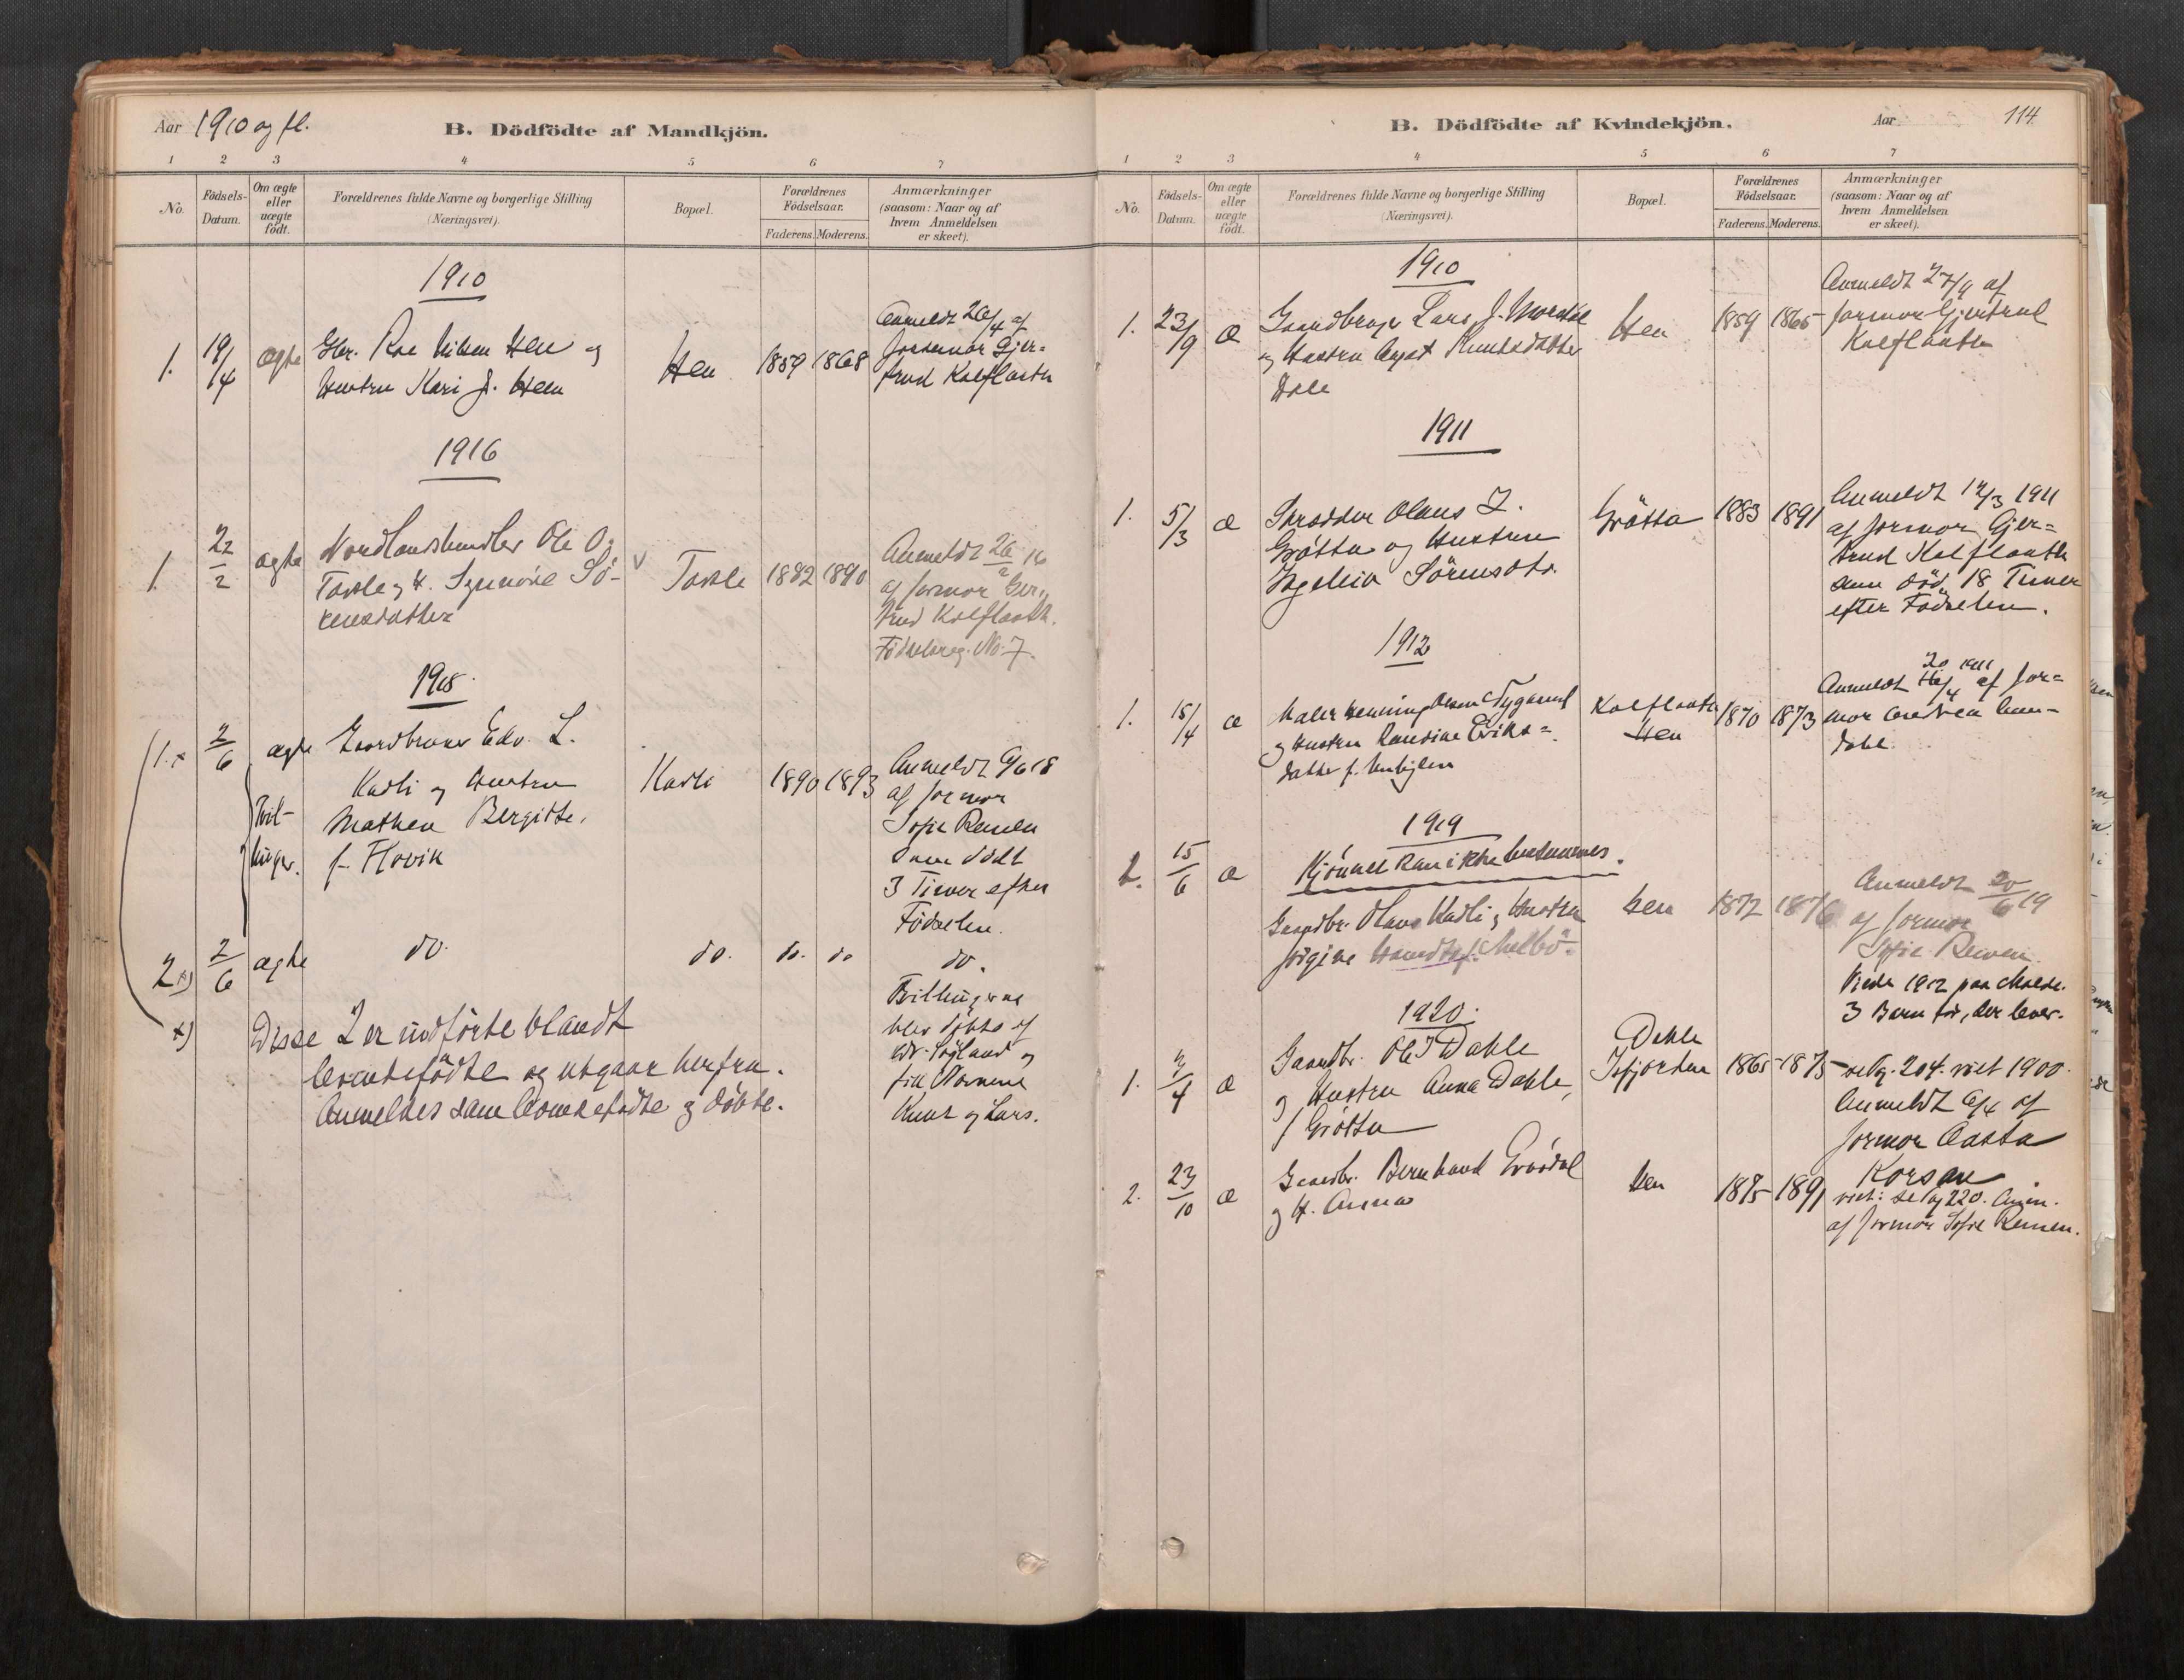 Aar 1910 og fl.
B. Dödfödte af Mandkjön.
1 2 3 4 5 6 7
No.
Födsels-
Datum.
Om ægte
eller
uægte
født.
Forældrenes fulde Navne og borgerlige Stilling
(Næringsvei).
Bopæl.
Forældrenes
Födselsaar.
Faderens. Moderens.
Anmærkninger
(saasom: Naar og af
hvem Anmeldelsen
er skeet).
1910
1. 19/4 ægte
Gbr. Roe Nilsen Hen og
Hustru Kari J. Hen
Hen 1859 1868
Anmeldt 20/4 af
Jordemor Gjer-
trud Kolflaath
1916
1. 22/2 ægte
Nordlandshandler Ole O.
Tokle og H. Synnöve Sö-
rensdatter
Tokle 1882 1890
Anmeldt 26/2 16
af jormor Ger-
trud Kolflaath.
Födselsreg. No. 7.
1918
1. x 2/6 ægte
Gaardbruker Edv. L.
Kavli og Hustru
Mathea Bergitte,
f. Flovik
Tvil-
linger.
Kavli 1890 1893
Anmeldt 9/6 18
af jormor
Sofie Remen
som dödt
3 Timer efter
Födselen.
2 x) 2/6 ægte do. do. do. do do.
Tvillingerne
blev döbte af
Edv. Söyland og
fik Navnene
Knut og Lars.
x) Disse 2 er indförte blandt
levendefödte og utgaar herfra.
Anmeldes som levendefödte og döbte.
B. Dödfödte af Kvindekjön.
Aar 114
1 2 3 4 5 6 7
No.
Födsels-
Datum.
Om ægte
eller
uægte
födt.
Forældrenes fulde Navne og borgerlige Stilling
(Næringsvei).
Bopæl.
Forældrenes
Födselsaar.
Faderens. Moderens.
Anmærkninger
(saasom: Naar og af
hvem Anmeldelsen
er skeet).
1910
1. 23/9 æ
Gaardbruger Lars J.
og Hustru Knutsdatter
Dale
Hen 1859 1865
Anmeldt 27/9 af
jormor Gjertrud
Kolflaath
1911
1. 5/3 æ
Skrædder Olaus I.
Gröttu og Hustru
Ingeleiv Sörensdtr.
Grötta 1883 1891
Anmeldt 12/3 1911
af jormor Gjer-
trud Kolflaath
som död 18 Timer
efter Födselen.
1912
1. 15/4 æ
Maler Henning Olsen
og Hustru Eriks-
datter f.
Kolflaath
Hen
1870 1873
Anmeldt 20/4 1911 af jor-
mor
1919
1. 15/6 æ
Kjönnet kan ikke bestemmes.
Gaardbr. Olaus Kavli og Hustru
Jörgine Melbö
Hen 1872 1876
Anmeldt 20/6 19
af jormor
Sofie Remen.
Viede 1912 paa Molde.
3 Barn för, der lever.
1920.
1. 3/4 æ
Gaardbr. Ole J Dahle
og Hustru Anna Dahle,
f Gröttu
Dahle
Isfjorden
1865 1875
se Pg. 204. viet 1900.
Anmeldt 6/4 af
jormor Aasta
Korsan
2. 23/10 æ
Gaardbr. Bernhard Grövdal
og H. Anna
Hen 1875 1891
viet: se Pg 220. Anm.
af jormor Sofie Remen.